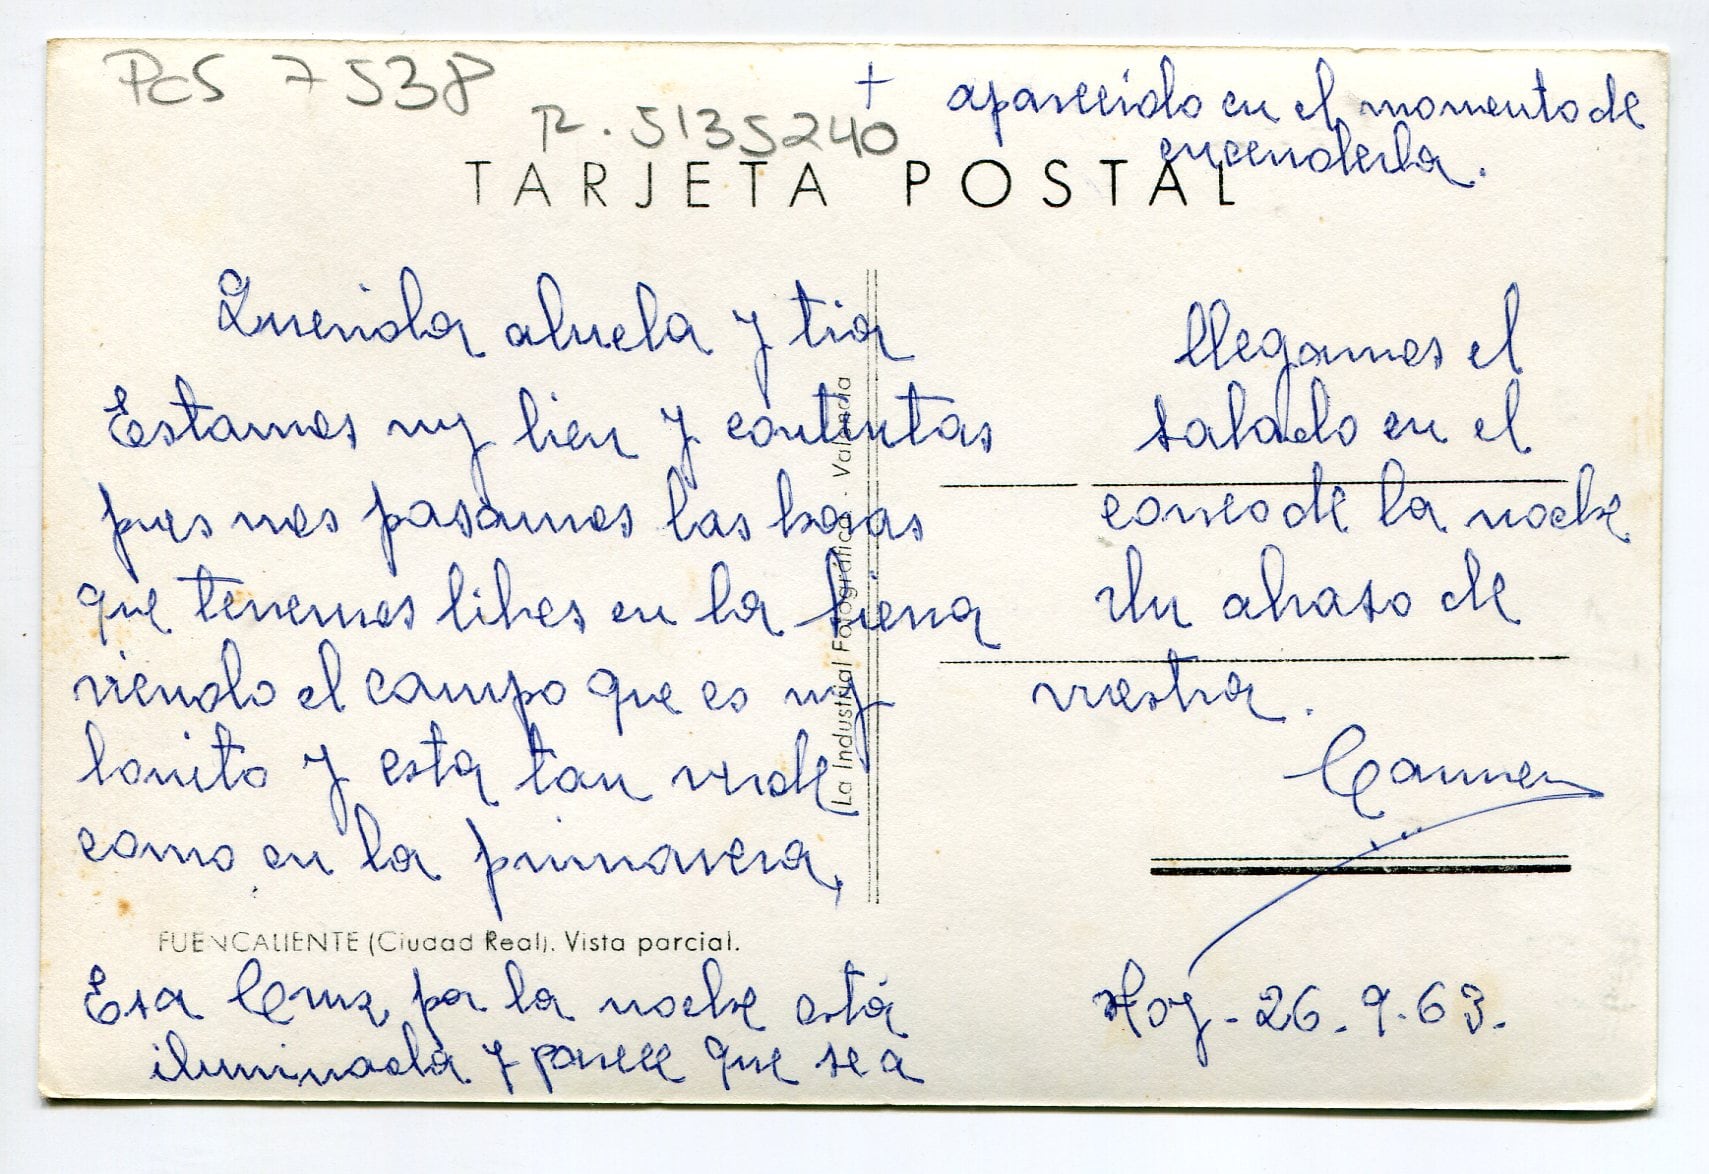 PCS 7538
R. 5135240
+ aparecido en el momento de
encenderla.
TARJETA POSTAL
Querida abuela y tia
Estamos muy bien y contentas
pues nos pasamos las horas
que tenemos libres en la sierra
viendo el campo que es muy
bonito y esta tan verde
como en la primavera,
La Industrial Fotográfica - Valencia
FUENCALIENTE (Ciudad Real). Vista parcial.
Esa Cruz por la noche está
iluminada y parece que se a
llegamos el
sabado en el
correo de la noche
Un abrazo de
vuestra.
Carmen
Hoy - 26 - 9 - 63.